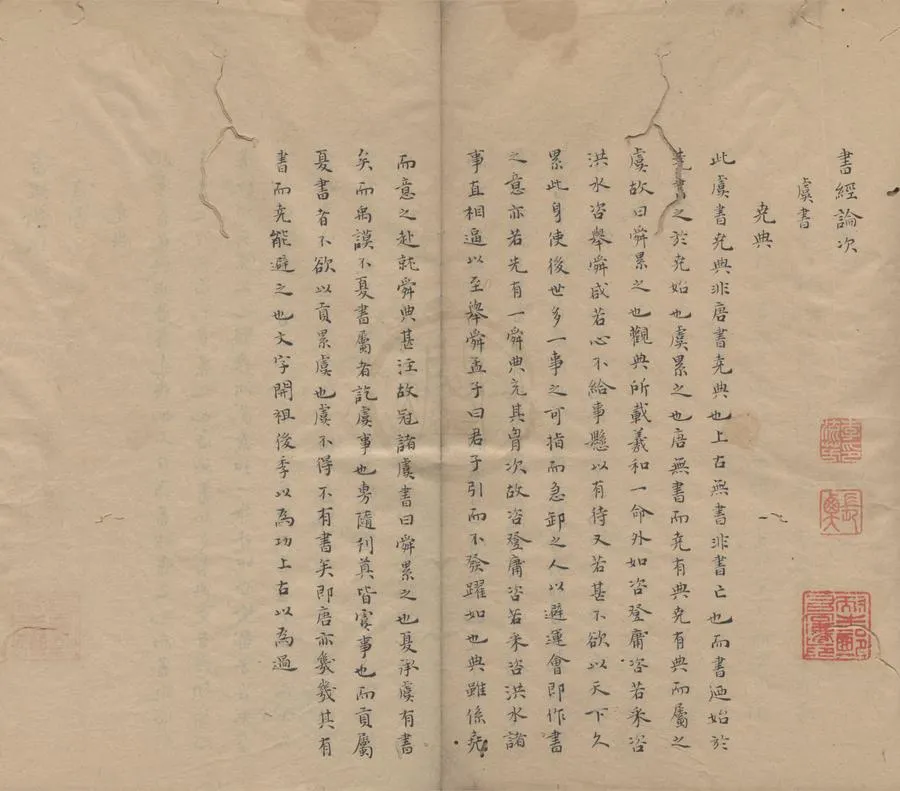 書經論次
虞書
堯典
此虞書堯典非唐書堯典也上古無書非書亡也而書迺始於
堯書之於堯始也虞累之也唐無書而堯有典堯有典而屬之
虞故曰舜累之也觀典所載羲和一命外如咨登庸咨若采咨
洪水咨舉舜咸若心不給事懸以有待又若甚不欲以天下久
累此身使後世多一事之可指而急卸之人以避運會即作書
之意亦若先有一舜典充其胷次故咨登庸咨若采咨洪水諸
事直相逼以至舉舜孟子曰君子引而不發躍如也典雖係堯
而意之赴就舜典甚注故冠諸虞書曰舜累之也夏承虞有書
矣而禹謨不夏書屬者訖虞事也旉隨刊奠皆虞事也而貢屬
夏書者不欲以貢累虞也虞不得不有書矣即唐亦幾幾其有
書而堯能避之也文字開祖後季以為功上古以為過